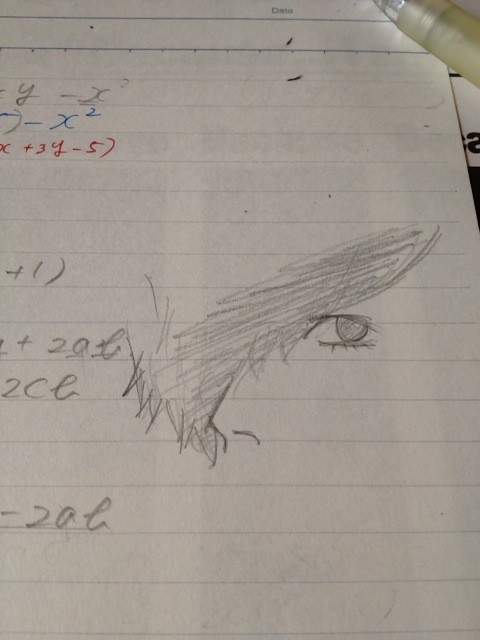 Date
y - x²
) - x²
x + 3y - 5)
+ 1)
+ 2ab
2cb
- 2ab